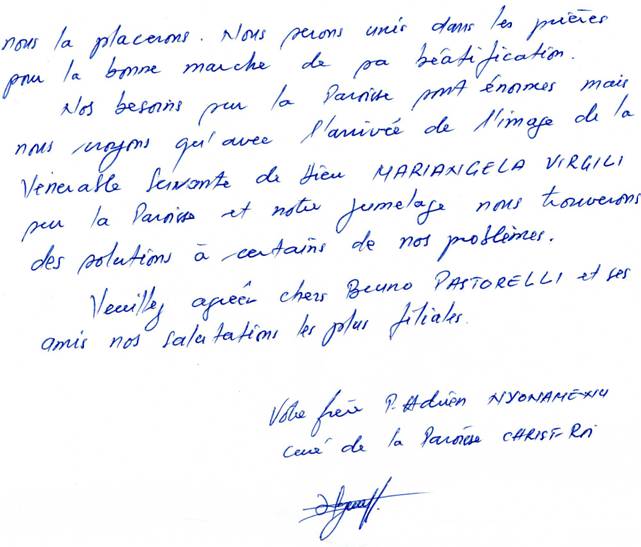 nous la placerons. Nous serons unis dans les prières
pour la bonne marche de sa béatification.
Nos besoins sur la Paroisse sont énormes mais
nous croyons qu'avec l'arrivée de l'image de la
Vénérable Servante de Dieu MARIANGELA VIRGILI
sur la Paroisse et notre jumelage nous trouverons
des solutions à certains de nos problèmes.
Veuillez agréer chers Bruno PASTORELLI et ses
amis nos salutations les plus filiales.
Votre frère P. Adrien
curé de la Paroisse CHRIST-ROI